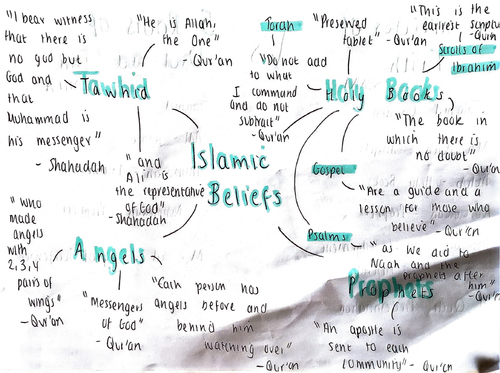 "I bear witness
that there is
no god but
God and
that
Muhammad is
his messenger"
- Shahadah
"He is Allah,
the One"
- Qur'an
Tawhid
"and
Ali is
the representative
of God"
- Shahadah
Islamic
Beliefs
Torah
"Do not add
to what
I command
and do not
subtract"
- Qur'an
"Preserved
tablet" - Qur'an
"This is the
earliest
Scrolls of
Ibrahim
Holy Books
"The book in
which there is
no doubt"
- Qur'an
Gospel
"Are a guide and a
lesson for those who
believe" - Qur'an
Psalms
"as we did to
Noah and the
prophets after
him"
- Qur'an
Prophets
"An apostle is
sent to each
community" - Qur'an
"Who
made
angels
with
2,3,4
pairs of
wings"
- Qur'an
Angels
"Messengers
of God"
- Qur'an
"Each person has
angels before and
behind him
watching over"
- Qur'an